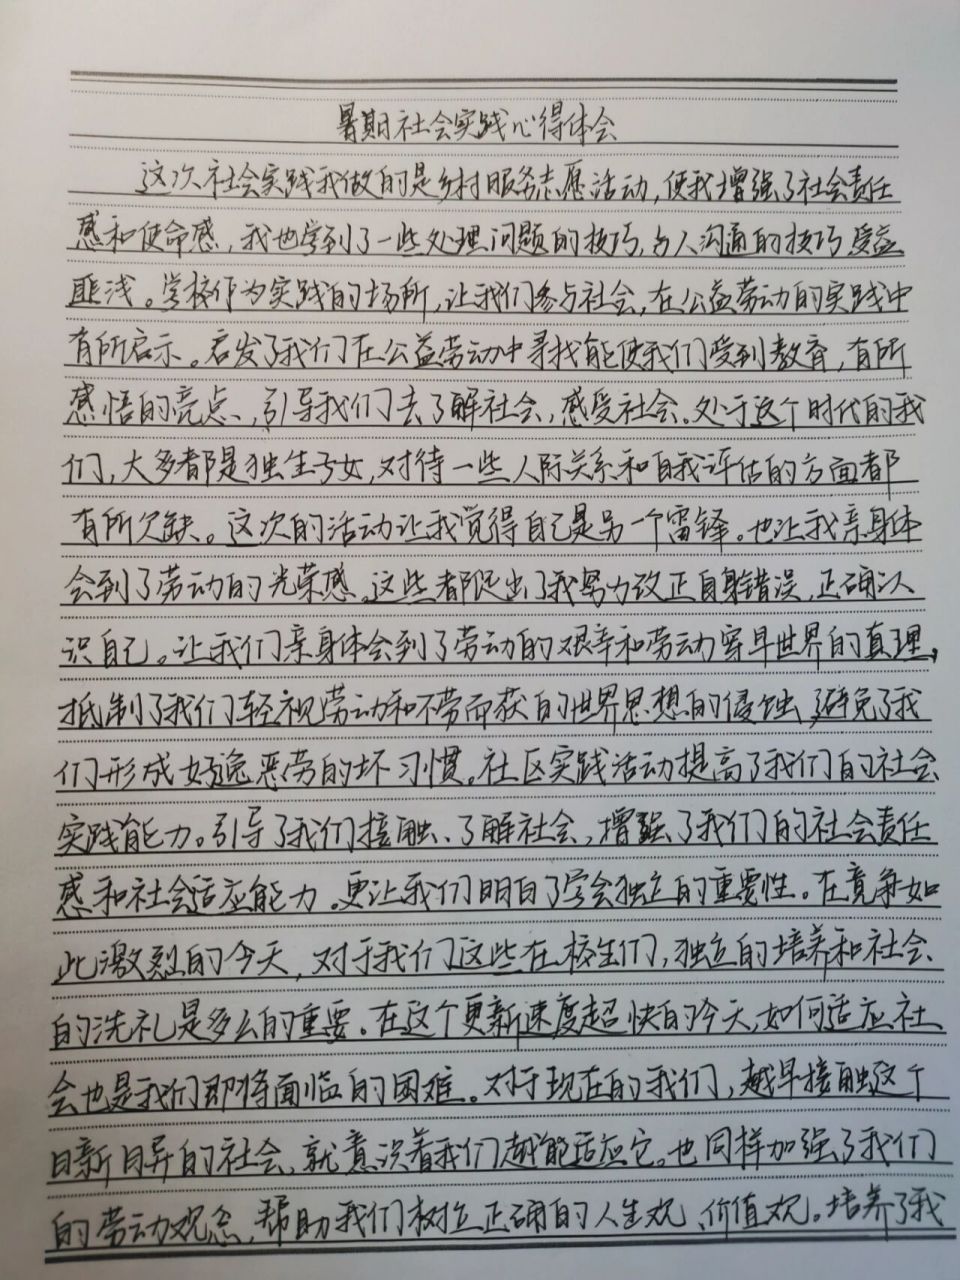 暑期社会实践心得体会
这次社会实践我做的是乡村服务志愿活动,使我增强了社会责任
感和使命感,我也学到了一些处理问题的技巧,与人沟通的技巧,受益
匪浅。学校作为实践的场所,让我们参与社会,在公益劳动的实践中
有所启示。启发了我们在公益劳动中寻找能使我们受到教育,有所
感悟的亮点、引导我们去了解社会,感受社会。处于这个时代的我
们,大多都是独生子女,对待一些人际关系和自我评估的方面都
有所欠缺。这次的活动让我觉得自己是另一个雷锋。也让我亲身体
会到了劳动的光荣感。这些都促出了我努力改正自身错误,正确认
识自己。让我们亲身体会到了劳动的艰辛和劳动世界的真理,
抵制了我们轻视劳动和不劳而获的世界思想的侵蚀,避免了我
们形成好逸恶劳的坏习惯。社区实践活动提高了我们的社会
实践能力。引导了我们接触、了解社会,增强了我们的社会责任
感和社会适应能力。更让我们明白了学会独立的重要性。在竟争如
此激烈的今天,对于我们这些在校生们,独立的培养和社会
的洗礼是多么的重要。在这个更新速度超快的今天,如何适应社
会也是我们即将面临的困难。对于现在的我们,越早接触这个
日新月异的社会、就意识着我们越能适应它。也同样加强了我们
的劳动观念,帮助我们树立正确的人生观、价值观。培养了我